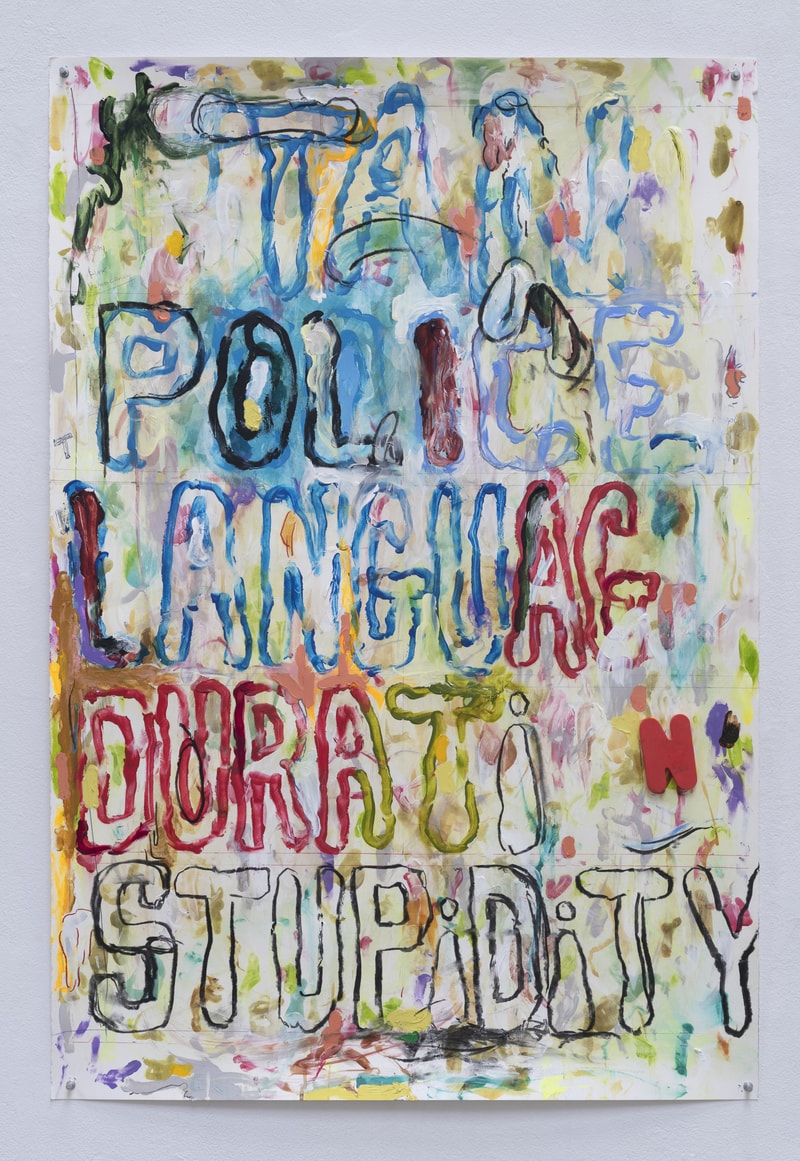 TAN
POLICE
T
LANGUAG
DURATi N
STUPiDiTY